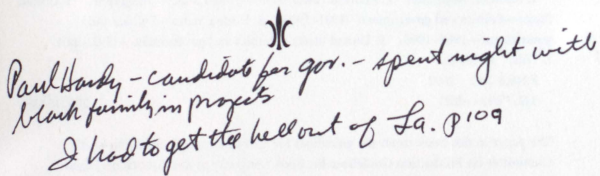 Paul Hardy - candidate for gov. - spent night with
black family in projects
I had to get the hell out of La. p109